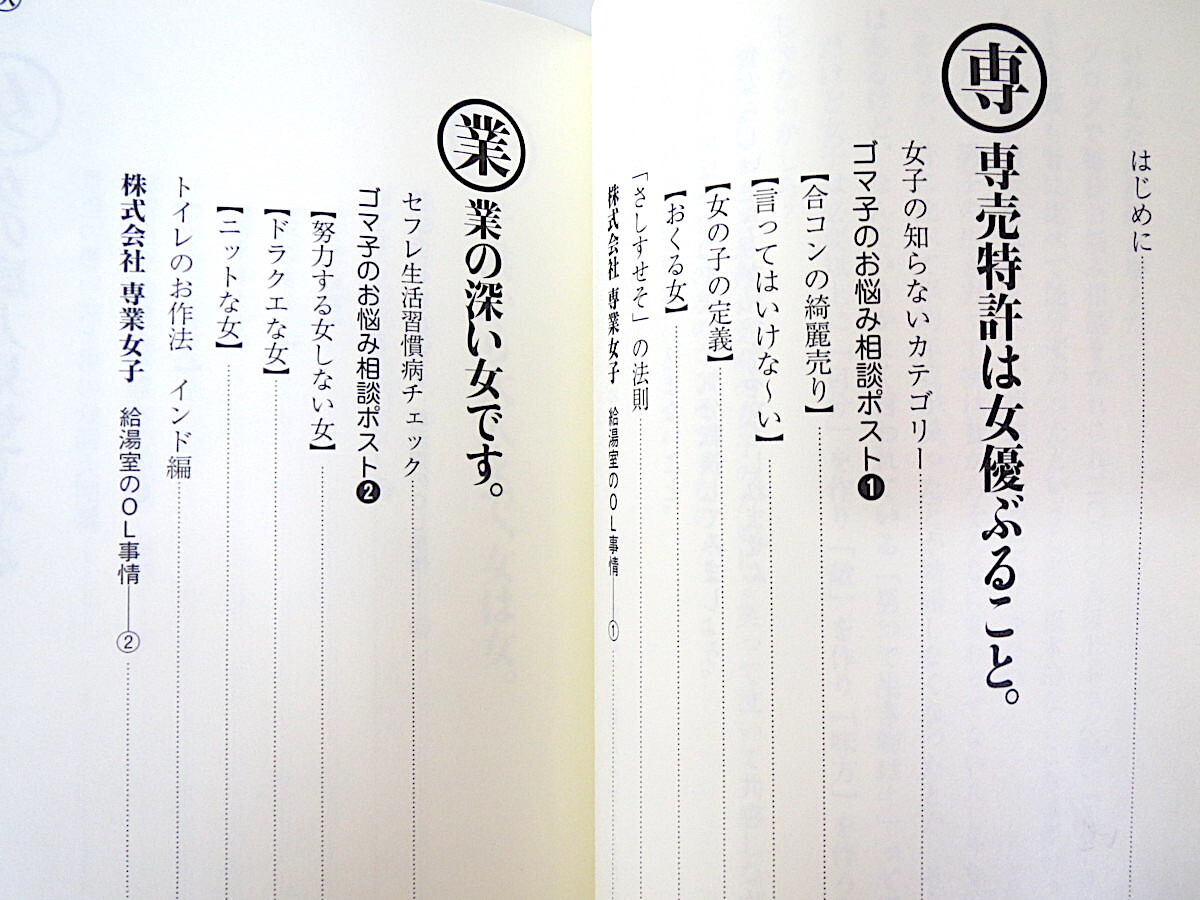 はじめに
専
専売特許は女優ぶること。
女子の知らないカテゴリー
ゴマ子のお悩み相談ポスト❶
【合コンの綺麗売り】
【言ってはいけな〜い】
【女の子の定義】
【おくる女】
「さしすせそ」の法則
株式会社 専業女子 給湯室のOL事情①
業
業の深い女です。
セフレ生活習慣病チェック
ゴマ子のお悩み相談ポスト❷
【努力する女しない女】
【ドラクエな女】
【ニットな女】
トイレのお作法 インド編
株式会社 専業女子 給湯室のOL事情②